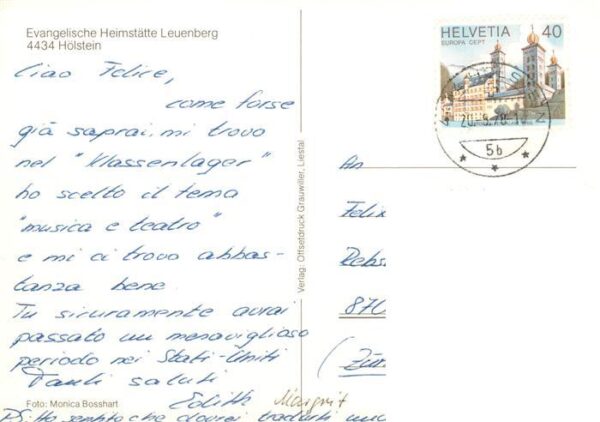 Evangelische Heimstätte Leuenberg
4434 Hölstein
Ciao Felice,
come forse
già saprai, mi trovo
nel "Klassenlager"
ho scelto il tema
"musica e teatro"
e mi ci trovo abbas-
tanza bene.
Tu sicuramente avrai
passato un meraviglioso
periodo nei Stati-Uniti
Tanti saluti
Edith Margrit
Foto: Monica Bosshart
PS: Ho sentito che dovrei tradurti
Verlag: Offsetdruck Grauwiller, Liestal
HELVETIA 40
EUROPA CEPT
5b
An
Felix
Rebs
870